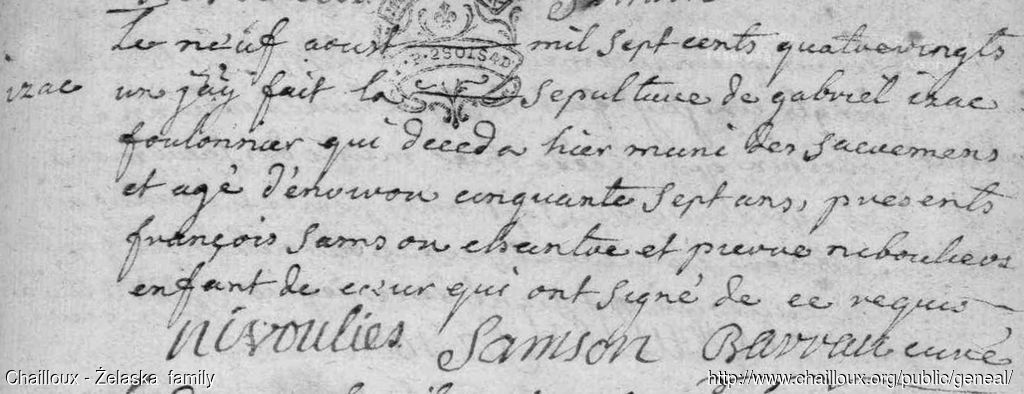 Le neuf aoust mil sept cents quatrevingts
P. 2 SOLS 4 D.
izac
un j'ay fait la sepulture de gabriel izac
foulonnier qui deceda hier muni des sacremens
et agé d'environ cinquante sept ans, presents
françois samson chantre et pierre nibouliers
enfant de cœur qui ont signé de ce requis
nivoulies Samson Barrau curé
Chailloux - Żelaska family
http://www.chailloux.org/public/geneal/